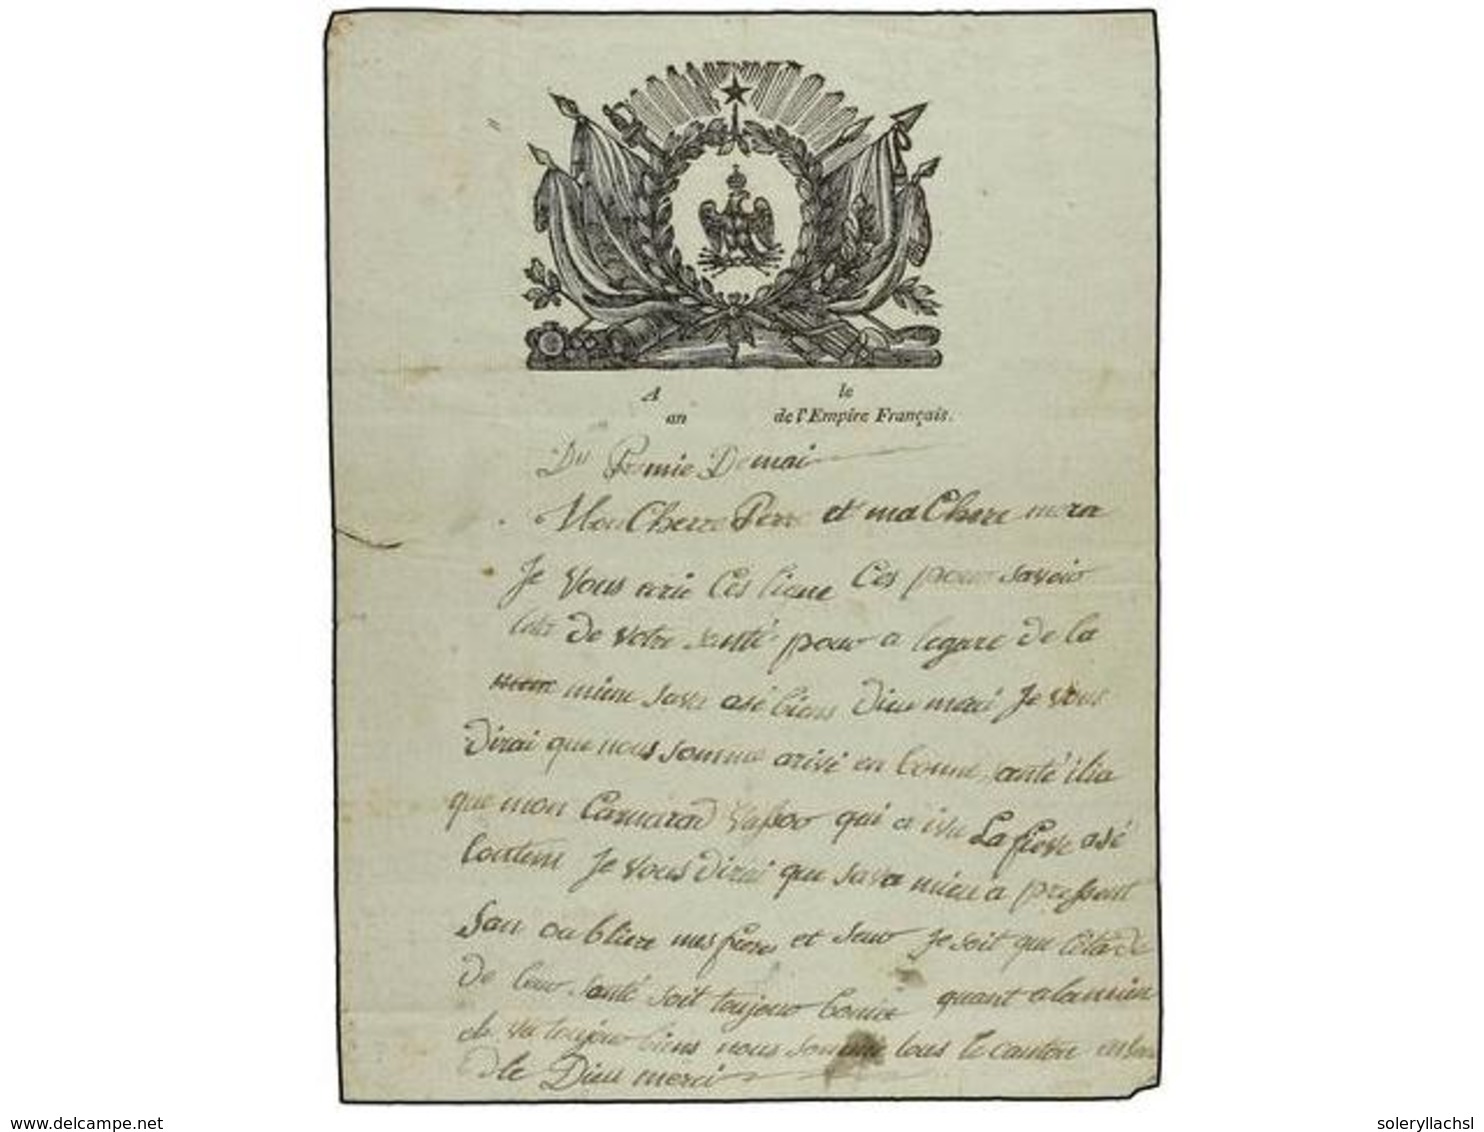 A le
an de l'Empire Français.
Du Premie De mai
Mon Cherre Perre et ma Chere mere
Je vous ecrie Ces ligne Ces pour savoir
de votre santé pour a legare de la
mien miene sava asé biens Dieu merci Je vous
dirai que nous somme arivé en bonne santé ilia
que mon Camarad qui a ivu La fievre asé
Je vous dirai que sava mieu a pressent
San oubliere mes freres et Seur Je soit que
de leur santé soit toujour bonne quant alamien
va toujour biens nous somme tous le canton
Dieu merci
delcampe.net
soleryllachsl